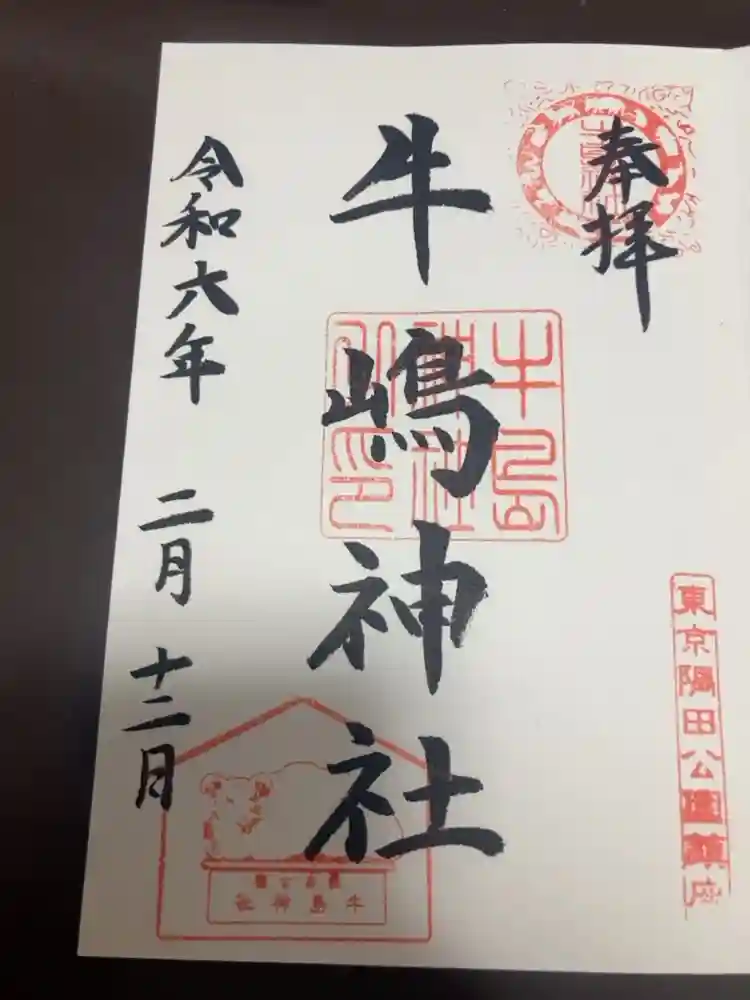 奉拝
東京隅田公園鎮座
牛嶋神社
牛島神社之印
令和六年 二月 十二日
牛島神社